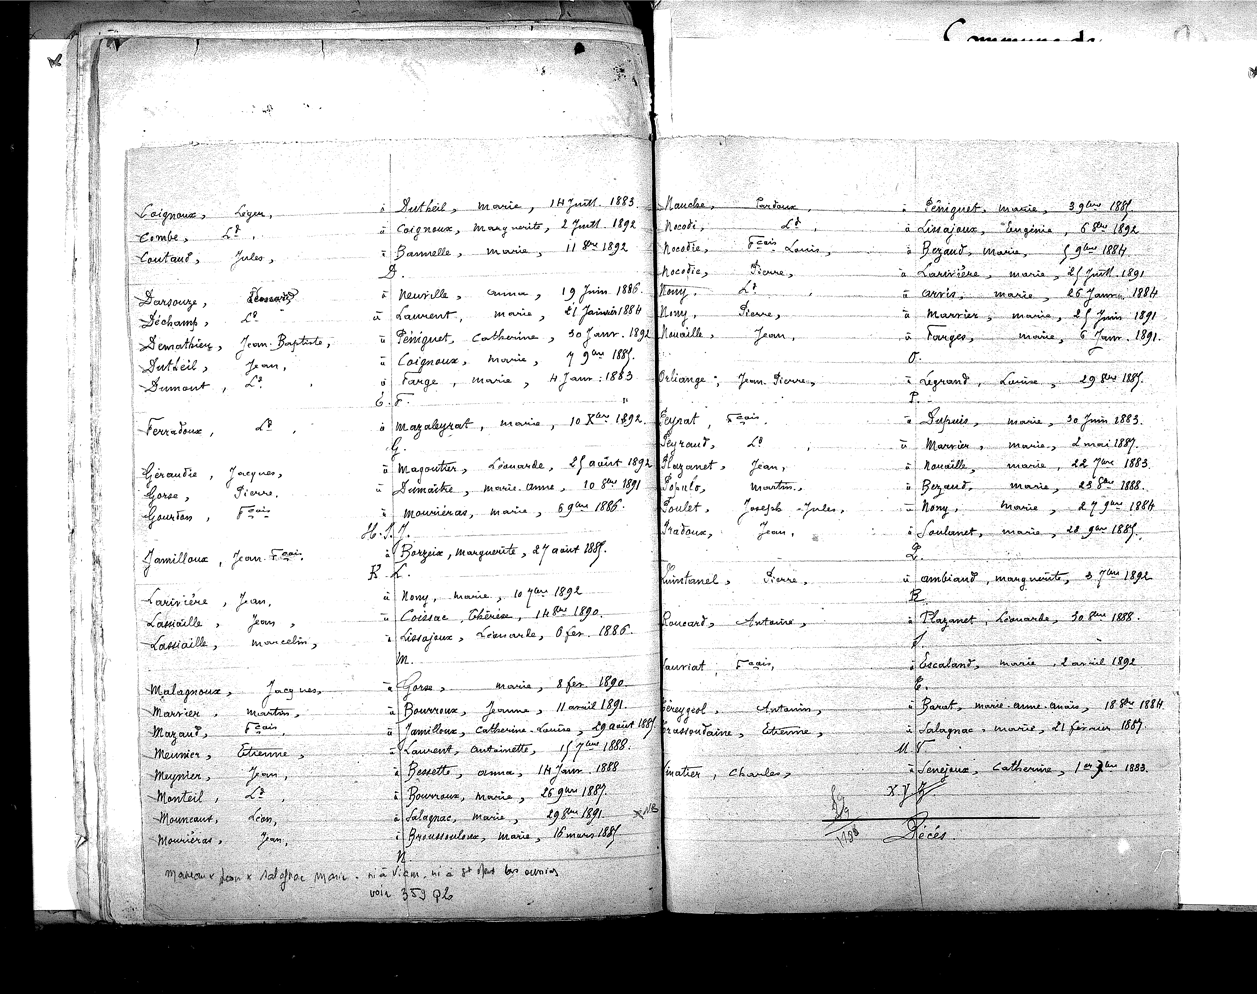 Commune de
Coignoux, Léger, à Dutheil, marie, 14 Juill. 1883
Combe, Ld, à Coignoux, marguerite, 2 Juill. 1892
Coutaud, Jules, à Bannelle, marie, 11 8bre 1892
D.
Darsouze, à Neuville, anna, 19 Juin 1886.
Déchamp, Ld à Laurent, marie, 21 Janvier 1884
Demathieu, Jean-Baptiste, à Péniguet, Catherine, 30 Janvr. 1892
Dutheil, Jean, à Coignoux, marie, 7 9bre 1885.
Dumont, Ld, à Farge, marie, 4 Janv. 1883
E. F.
Ferradoux, Ld, à Mazaleyrat, marie, 10 Xbre 1892.
G.
Géraudie, Jacques, à Magoutier, Léonarde, 25 août 1892
Gorse, Pierre, à Dumaître, marie-anne, 10 8bre 1891
Gourdon, Fçois à mouriéras, marie, 6 9bre 1886.
H. I. J.
Jamilloux, Jean-Fçois à Borzeix, marguerite, 27 août 1885.
K L.
Larivière, Jean, à Nony, marie, 10 7bre 1892
Lassiaille, Jean, à Coissac, Thérèse, 14 8bre 1890.
Lassiaille, marcelin, à Lissajoux, Léonarde, 6 fev. 1886.
M.
Malagnoux, Jacques, à Gorse, marie, 8 fev. 1890.
Marvier, martin, à Bourroux, Jeanne, 11 avril 1891.
Mazaud, Fçois, à Jamilloux, Catherine-Louise, 29 août 1885.
Meunier, Etienne, à Laurent, antoinette, 15 7bre 1888.
Meynier, Jean, à Bessette, anna, 14 Janv. 1888
Monteil, Ld, à Bourroux, Marie, 26 9bre 1887.
Mounaut, Léon, à Salagnac, Marie, 29 8bre 1891. x NB
Mouriéras, Jean, à Broussouloux, marie, 16 mars 1885
N.
Jean x Salagnac Marie - ni à Viam, ni à St
voir 359 Q2
Nauche, Pardoux, à Péniguet, marie, 3 9bre 1885.
Nocodi, Ld, à Lissajoux, Eugénie, 6 8bre 1892
Nocodie, Fçois Louis, à Bezaud, Marie, 5 9bre 1884
Nocodie, Pierre, à Larivière, marie, 25 Juill. 1891
Nony, Ld, à arvis, marie, 26 Janv. 1884
Nony, Pierre, à Marvier, marie, 25 Juin 1891
Nouaille, Jean, à Farges, marie, 6 Janv. 1891.
O.
Orliange, Jean-Pierre, à Legrand, Louise, 29 8bre 1885.
P.
Peyrat, Fçois à Dupuis, marie, 30 Juin 1883.
Peyraud, Ld, à Marvier, marie, 2 mai 1887.
Plazanet, Jean, à Nouaille, marie, 22 7bre 1883.
Populo, martin, à Bezaud, marie, 23 8bre 1888.
Poulet, Joseph-Jules, à Nony, marie, 27 9bre 1884
Pradoux, Jean, à Soulanet, marie, 28 9bre 1885.
Q.
Quintanel, Pierre, à ambiaud, marguerite, 3 7bre 1892
R.
Rouard, Antoine, à Plazanet, Léonarde, 30 8bre 1888.
S.
Sauriat, Fçois, à Escaland, marie, 2 avril 1892
T.
Téreygeol, Antonin, à Barat, marie-anne-anaïs, 18 8bre 1884
Trassoudaine, Etienne, à Salagnac, marie, 21 février 1887
U V
Vinatier, Charles, à Senéjoux, Catherine, 1er 1883.
X Y Z
1188
Décés.